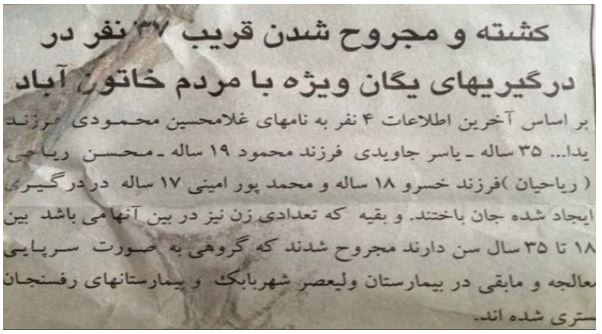 کشته و مجروح شدن قریب ۳۷ نفر در
درگیریهای یگان ویژه با مردم خاتون آباد
بر اساس آخرین اطلاعات ۴ نفر به نامهای غلامحسین محمودی فرزند
یدا... ۳۵ ساله ـ یاسر جاویدی فرزند محمود ۱۹ ساله ـ محسن ریاحی
( ریاحیان )فرزند خسرو ۱۸ ساله و محمد پور امینی ۱۷ ساله در درگیری
ایجاد شده جان باختند. و بقیه که تعدادی زن نیز در بین آنها می باشد بین
۱۸ تا ۳۵ سال سن دارند مجروح شدند که گروهی به صورت سرپایی
معالجه و مابقی در بیمارستان ولیعصر شهربابک و بیمارستانهای رفسنجان
بستری شده اند.